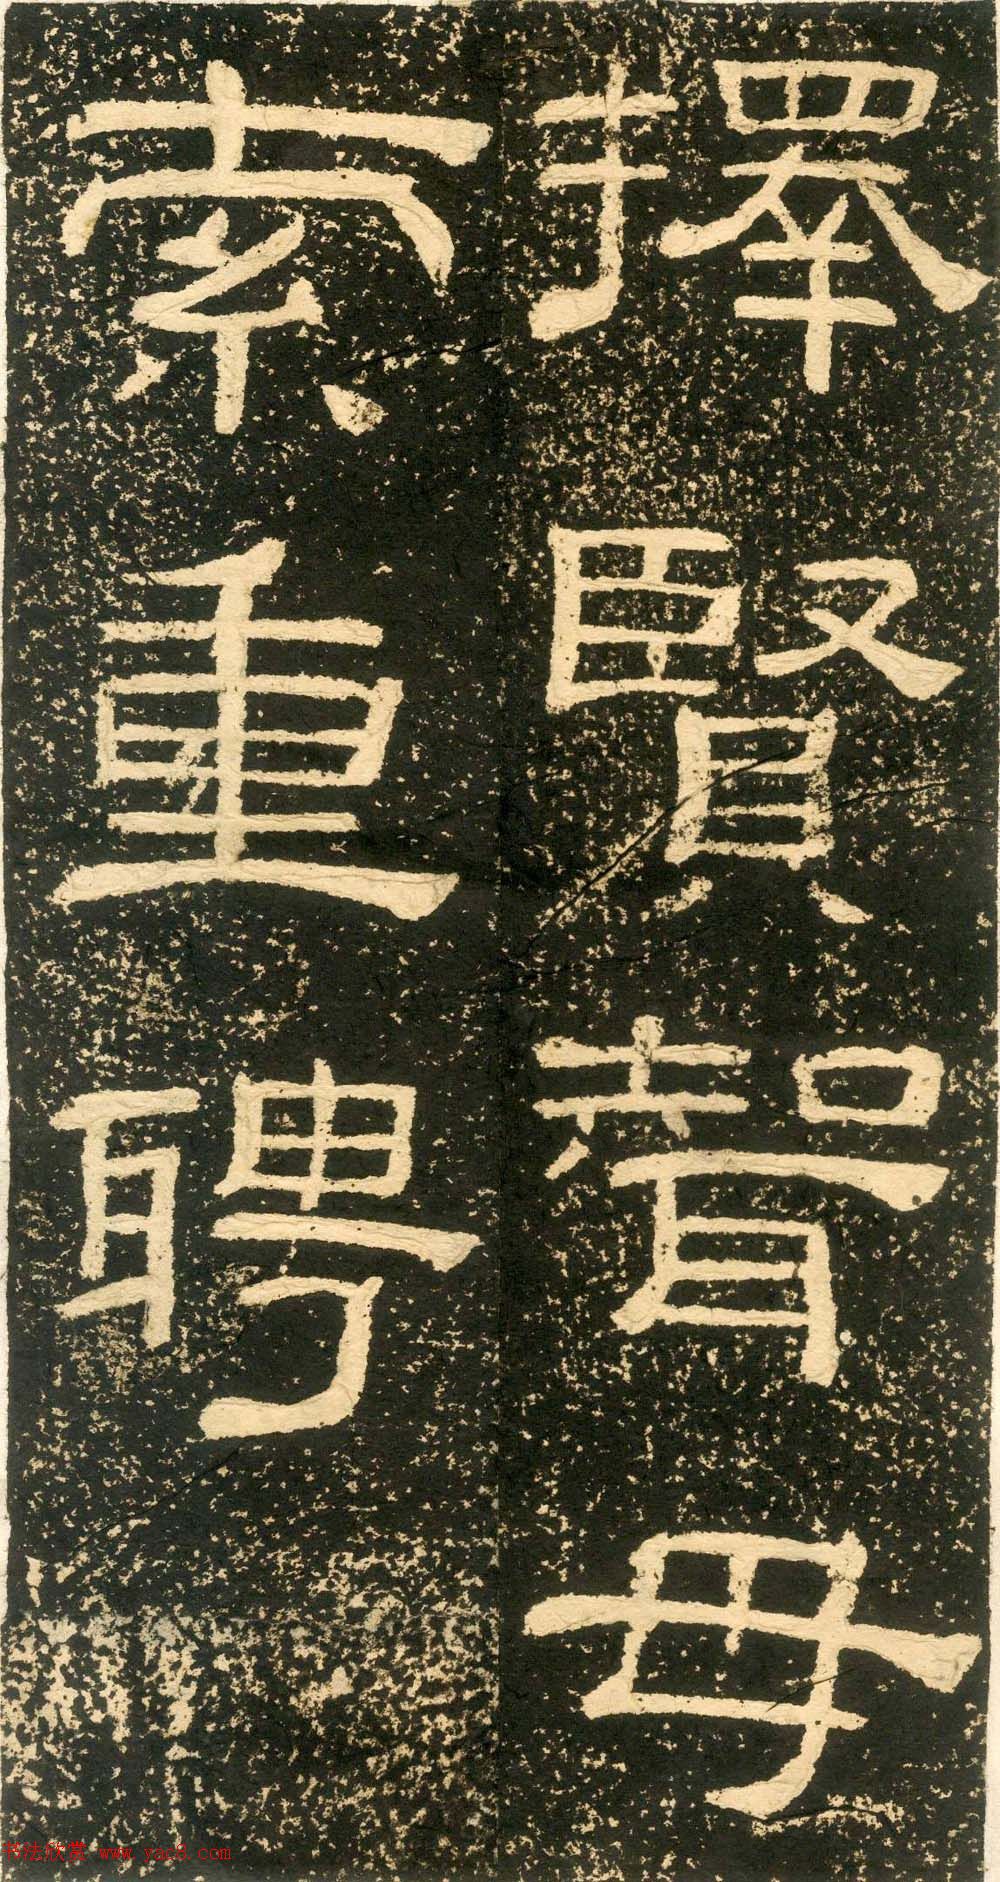 擇賢壻毋
索重聘
书法欣赏 www.yac8.com